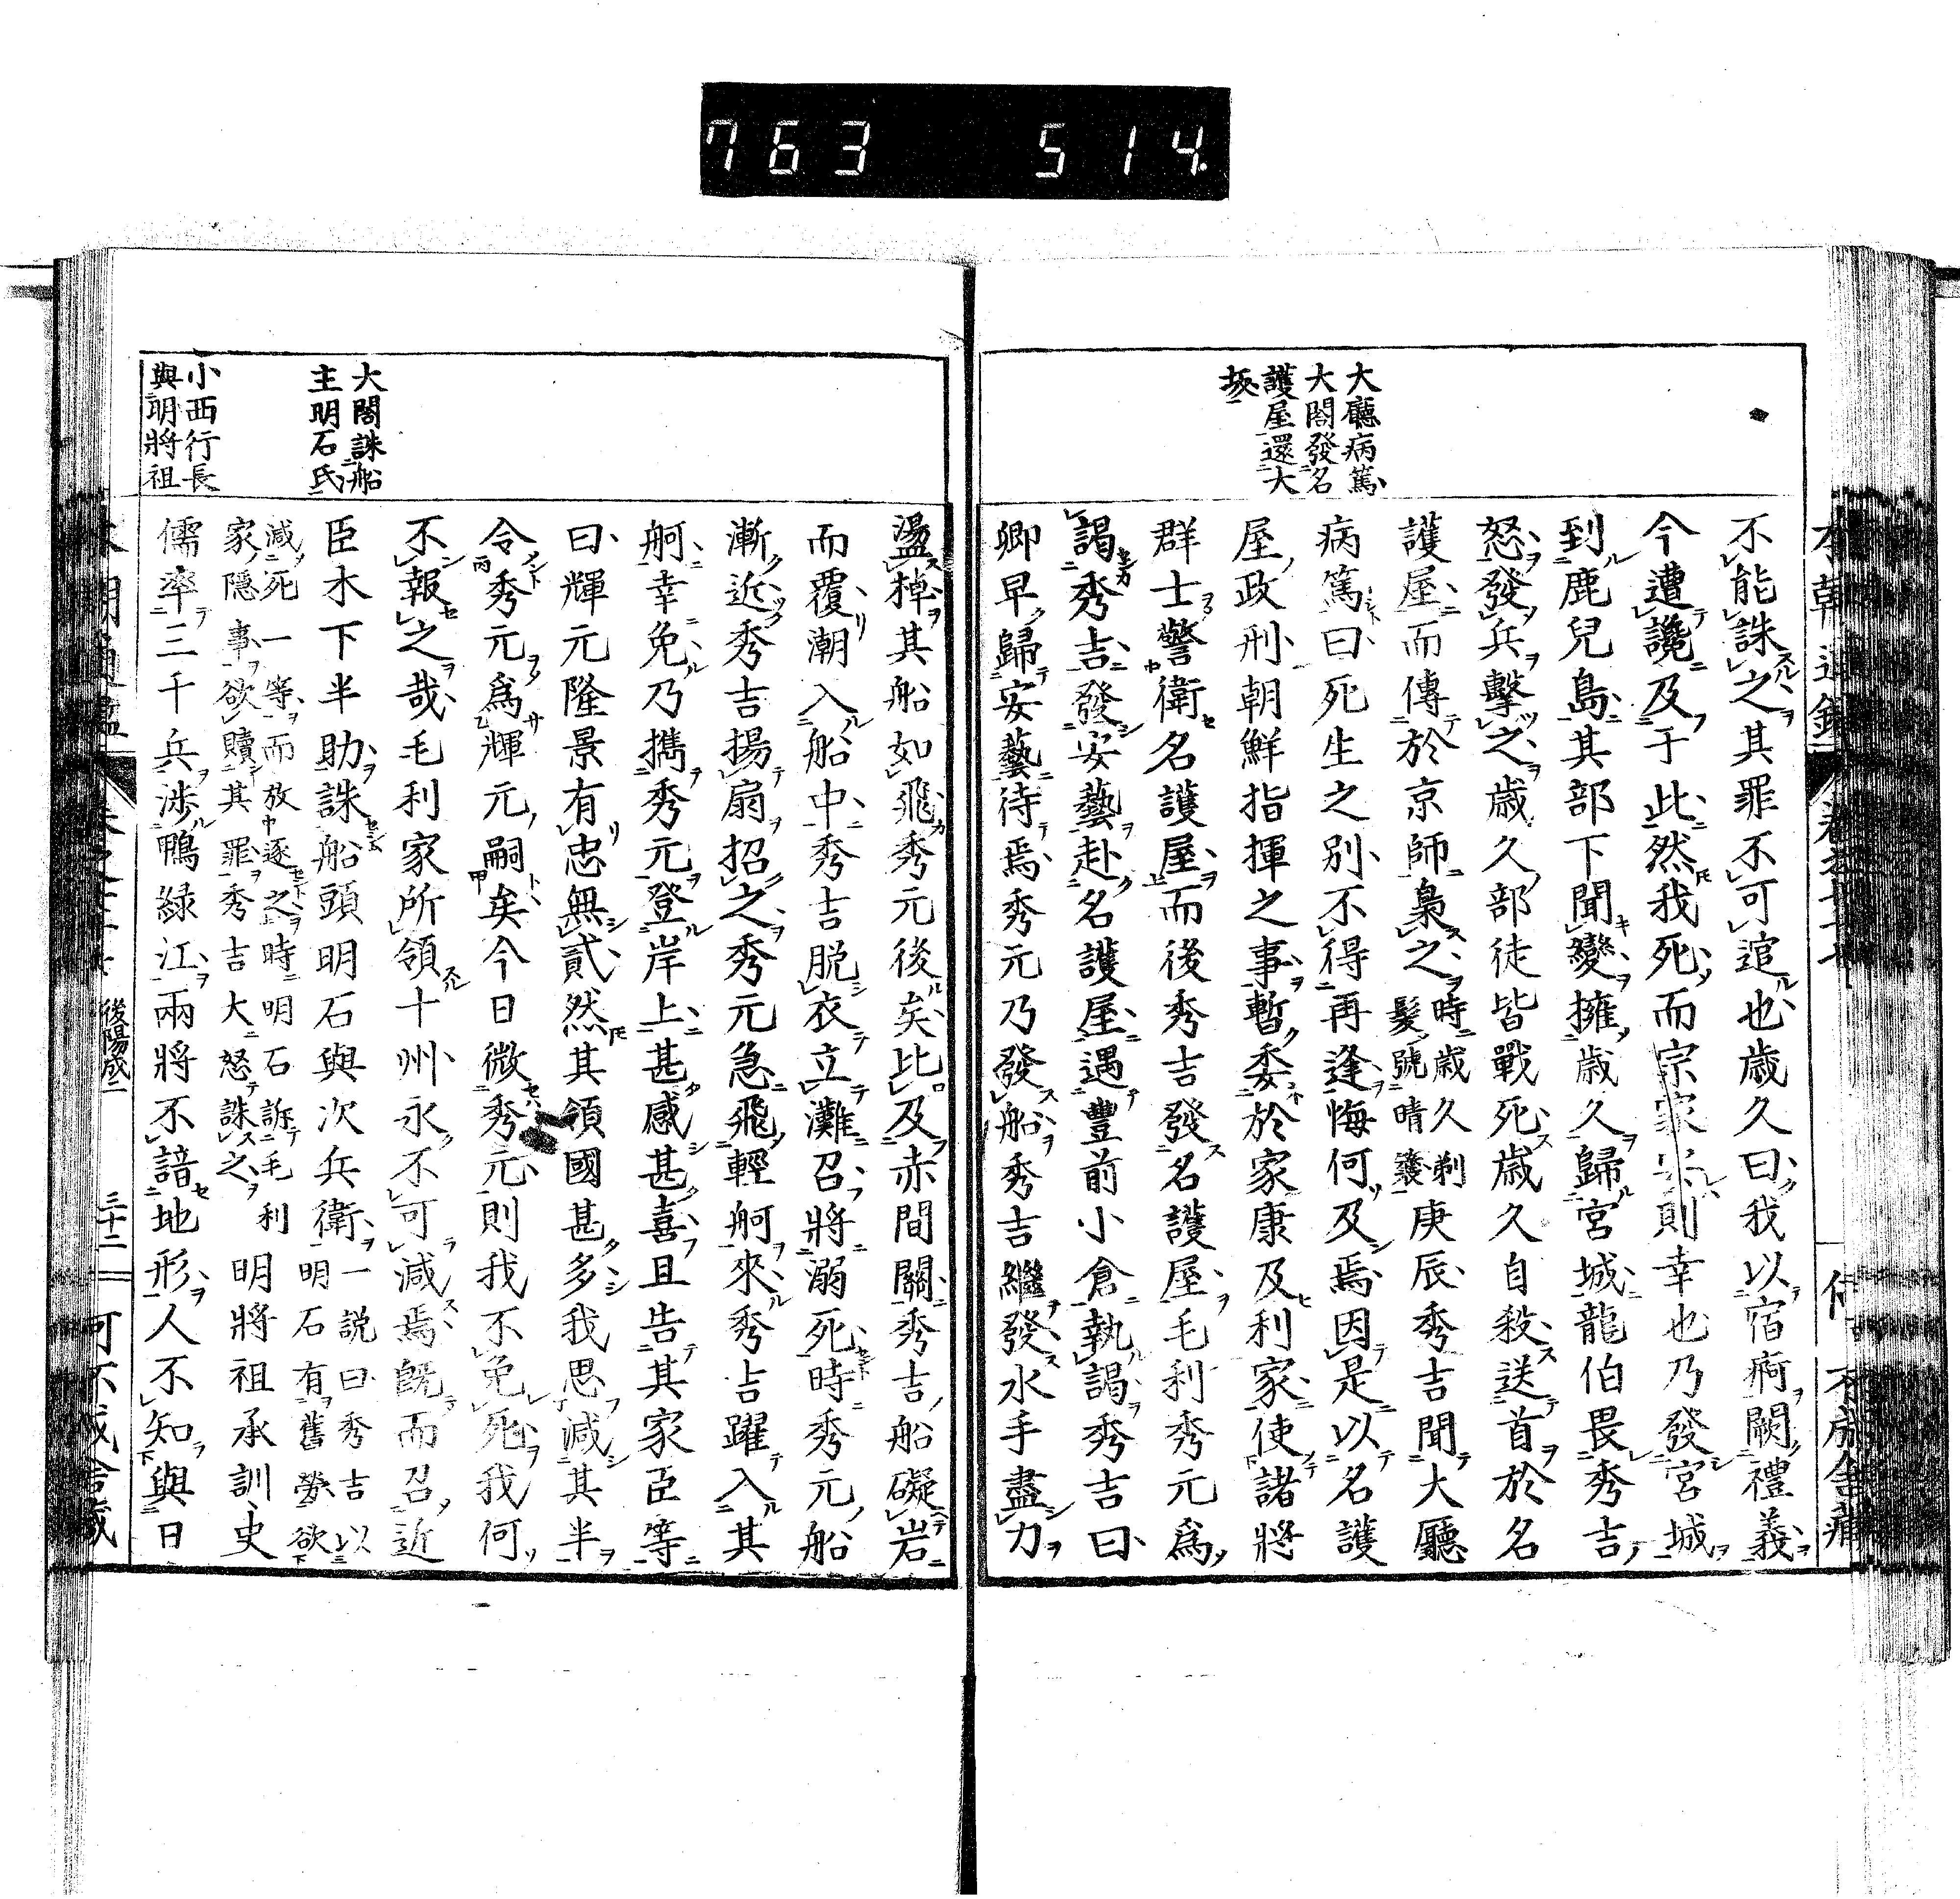 763 514
大廳病篤
大閤發名
護屋還大
坂
不能誅之其罪不可逭也歳久曰我以宿痾闕禮義
今遭讒及于此然我死而宗家安則幸也乃發宮城
到鹿兒島其部下聞變擁歳久歸宮城龍伯畏秀吉
怒發兵擊之歳久部徒皆戰死歳久自殺送首於名
護屋而傳於京師梟之時歳久剃髮號晴蓑庚辰秀吉聞大廳
病篤曰死生之別不得再逢悔何及焉因是以名護
屋政刑朝鮮指揮之事暫委於家康及利家使諸將
群士警衛名護屋而後秀吉發名護屋毛利秀元爲
謁秀吉發安藝赴名護屋遇豐前小倉執謁秀吉曰
卿早歸安藝待焉秀元乃發船秀吉繼發水手盡力
大閤誅船
主明石氏
小西行長
與明將祖
盪棹其船如飛秀元後矣比及赤間關秀吉船礙岩
而覆潮入船中秀吉脱衣立灘召將溺死時秀元船
漸近秀吉揚扇招之秀元急飛輕舸來秀吉躍入其
舸幸免乃携秀元登岸上甚感甚喜且告其家臣等
曰輝元隆景有忠無貳然其領國甚多我思減其半
令秀元爲輝元嗣矣今日微秀元則我不免死我何
不報之哉毛利家所領十州永不可減焉既而召近
臣木下半助誅船頭明石與次兵衛一説曰秀吉以明石有舊勞欲
減死一等而放逐之時明石訴毛利家隱事欲贖其罪秀吉大怒誅之明將祖承訓史
儒率三千兵渉鴨緑江兩將不諳地形人不知與日
後陽成二
三十二